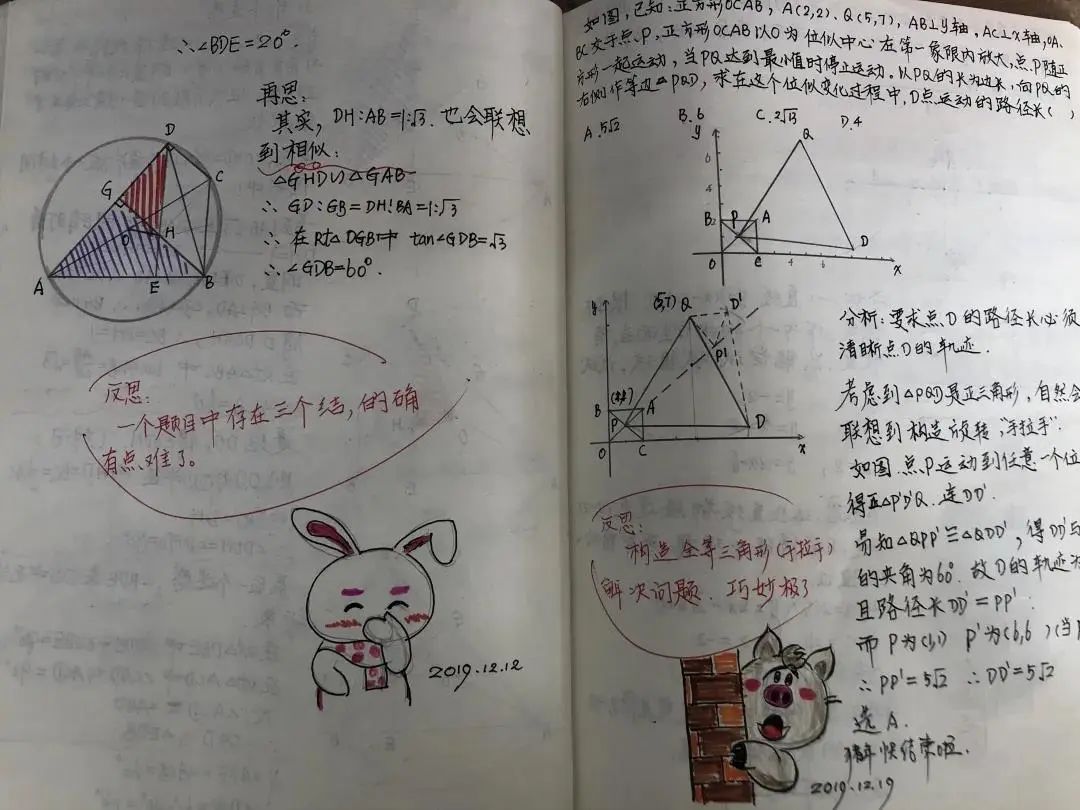 ∴∠BDE=20°.
再思:
其实, DH:AB=1:√3. 也会联想
到相似:
△GHD∽△GAB
∴ GD:GB=DH:BA=1:√3
∴ 在Rt△DGB中 tan∠GDB=√3
∴ ∠GDB=60°.
D
G
C
O
H
A
E
B
反思:
一个题目中存在三个结, 的确
有点难了。
2019.12.12
如图, 已知: 正方形OCAB, A(2,2), Q(5,7), AB⊥y轴, AC⊥x轴, OA、
BC交于点P, 正方形OCAB以O为位似中心在第一象限内放大, 点P随正
方形一起运动, 当PQ达到最小值时停止运动. 以PQ的长为边长, 向PQ的
右侧作等边△PQD, 求在这个位似变化过程中, D点运动的路径长( )
A.5√2
B.6
C.2√13
D.4
y
6
4
B
2
P
A
Q
D
O
C
4
6
x
y
(5,7)
Q
D'
P'
B
A
P
D
O
C
x
分析: 要求点D的路径长必须
清晰点D的轨迹.
考虑到△PQD是正三角形, 自然会
联想到构造旋转"手拉手".
如图. 点P运动到任意一个位
得正△P'D'Q. 连DD'
易知△QPP'≌△QDD', 得DD'与
的夹角为60°. 故D的轨迹为
且路径长DD'=PP'.
而P为(1,1) P'为(6,6)(当P
∴ PP'=5√2 ∴ DD'=5√2
选A.
猪年快结束啦.
反思:
构造全等三角形(手拉手)
解决问题. 巧妙极了
2019.12.19